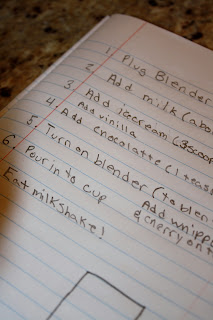 1. Plug Blender
2. Add milk (abo
3. Add icecream (3 scoon
Add vinilla
4. Add chocolatte (1 teas
5. Turn on blender (to blen
6. Pour in to cup
Add whipp
& cherry on t
Eat milkshake!